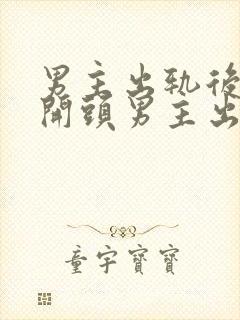 男主出軌後
開頭男主出
童宇寶寶